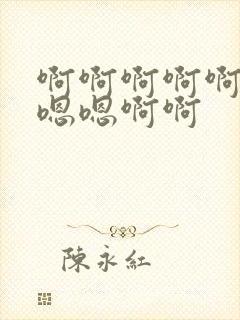 啊啊啊啊啊
嗯嗯啊啊
陳永紅